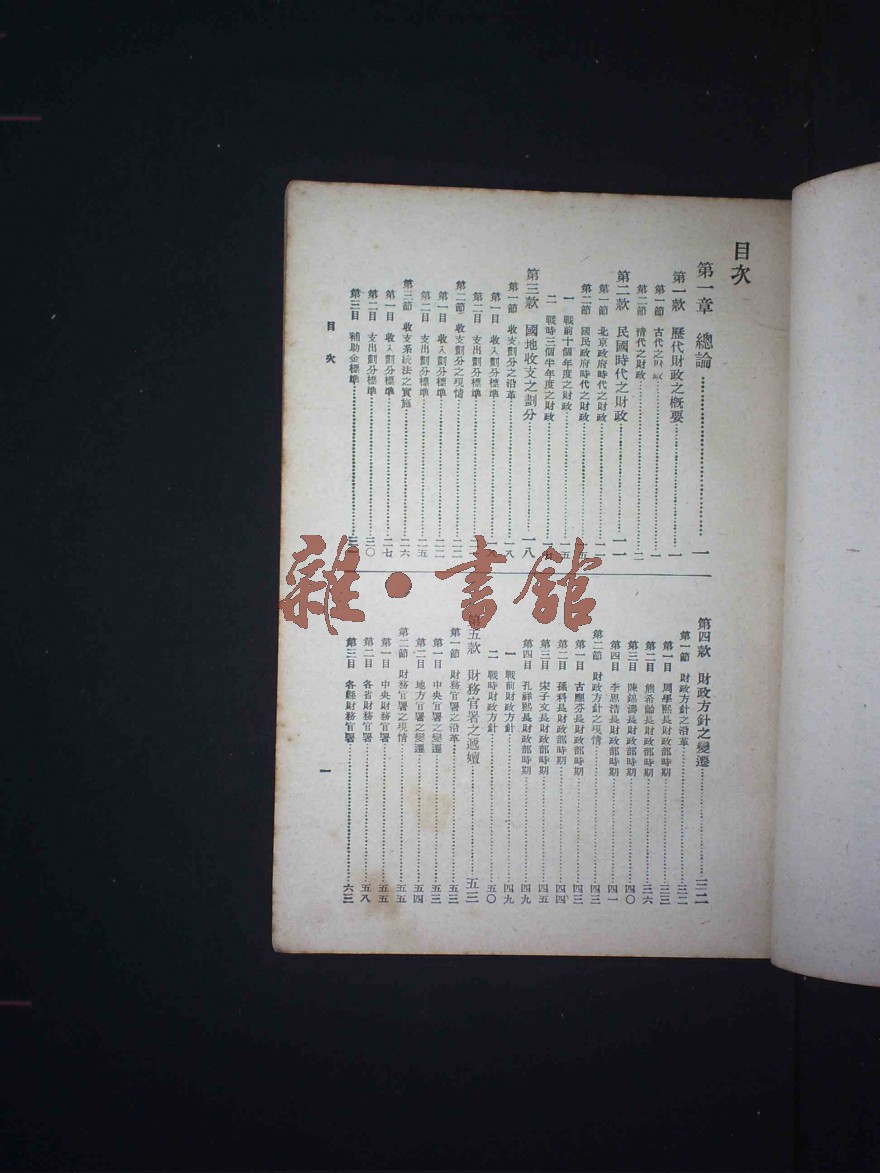 目次
第一章 總論…………一
第一款 歷代財政之概要…………一
第一節 古代之財政…………一
第二節 清代之財政…………二
第二款 民國時代之財政…………一一
第一節 北京政府時代之財政…………一一
第二節 國民政府時代之財政…………
一 戰前十個年度之財政…………一五
二 戰時三個半年度之財政…………
第三款 國地收支之劃分…………一八
第一節 收支劃分之沿革…………一八
第一目 收入劃分標準…………
第二目 支出劃分標準…………
第二節 收支劃分之現情…………二二
第一目 收入劃分標準…………二二
第二目 支出劃分標準…………二五
第三節 收支系統法之實施…………二六
第一目 收入劃分標準…………二七
第二目 支出劃分標準…………三〇
第三目 補助金標準…………
第四款 財政方針之變遷…………三二
第一節 財政方針之沿革…………三二
第一目 周學熙長財政部時期…………三三
第二目 熊希齡長財政部時期…………三六
第三目 陳錦濤長財政部時期…………四〇
第四目 李思浩長財政部時期…………四一
第二節 財政方針之現情…………四三
第一目 古應芬長財政部時期…………四三
第二目 孫科長財政部時期…………四四
第三目 宋子文長財政部時期…………四五
第四目 孔祥熙長財政部時期…………四九
一 戰前財政方針…………四九
二 戰時財政方針…………五〇
第五款 財務官署之遞嬗…………五三
第一節 財務官署之沿革…………五三
第一目 中央官署之變遷…………五三
第二目 地方官署之變遷…………五四
第二節 財務官署之現情…………五五
第一目 中央財務官署…………五五
第二目 各省財務官署…………五八
第三目 各縣財務官署…………六三
目次
一
雜·書館